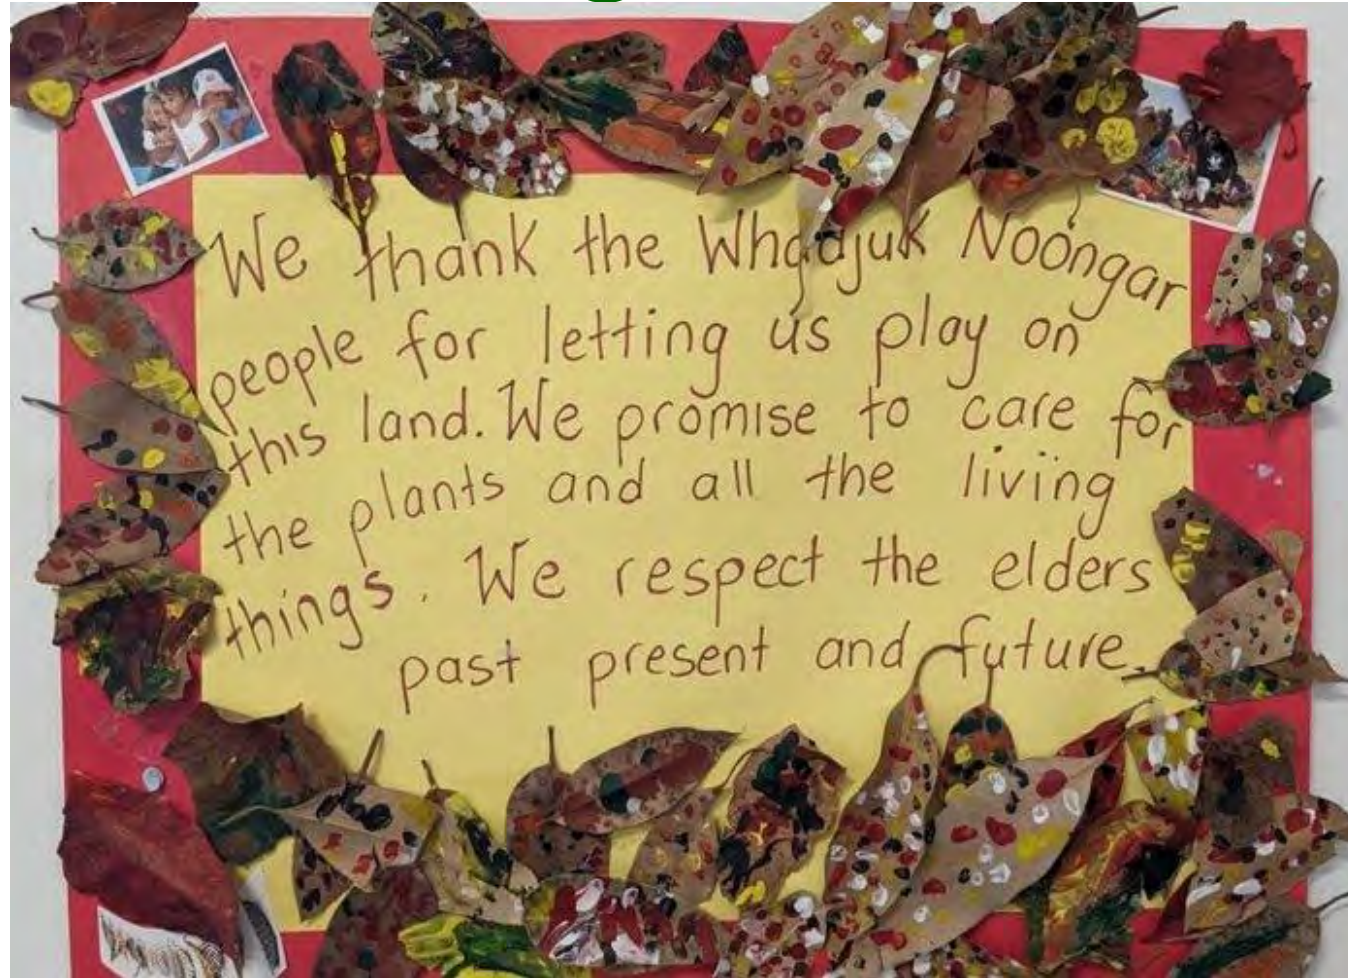 We thank the Whadjuk Noongar
people for letting us play on
this land. We promise to care for
the plants and all the living
things. We respect the elders
past present and future.